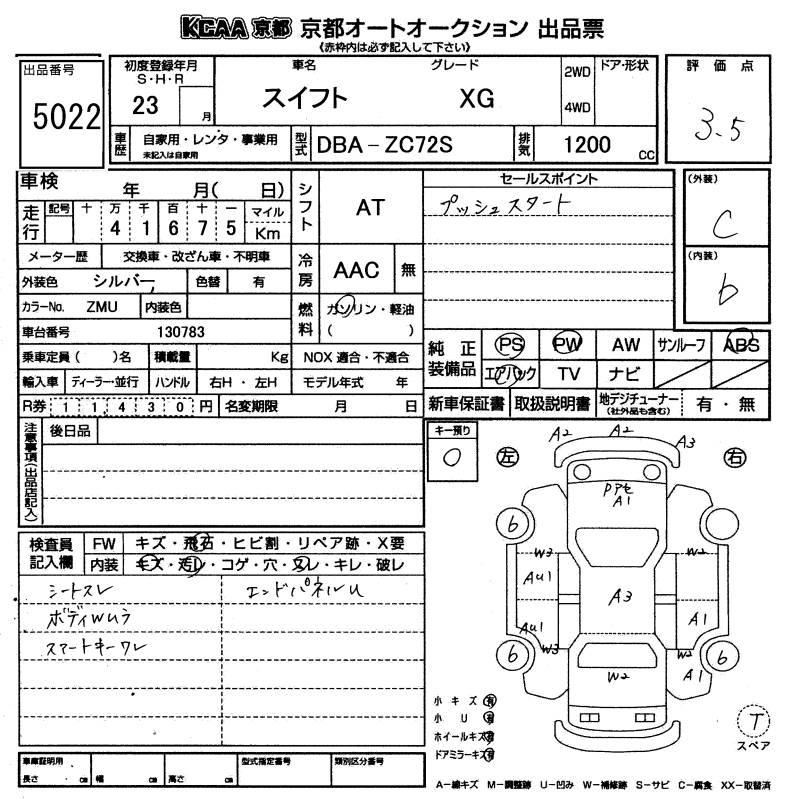 KCAA 京都 京都オートオークション 出品票
《赤枠内は必ず記入して下さい》
出品番号
5022
初度登録年月
S・H・R
23 月
車名 グレード
スイフト XG
2WD
4WD
ドア・形状
評価点
3.5
車歴 自家用・レンタ・事業用
未記入は自家用
型式 DBA-ZC72S
排気 1200 cc
車検 年 月( 日)
走行 記号 十 万 千 百 十 一 マイル
4 1 6 7 5 Km
メーター歴 交換車・改ざん車・不明車
外装色 シルバー, 色替 有
カラーNo. ZMU 内装色
車台番号 130783
乗車定員 ( )名 積載量 Kg
輸入車 ディーラー・並行 ハンドル 右H・左H
R券 1 1,4 3 0 円 名変期限 月 日
シフト AT
冷房 AAC 無
燃料 ガソリン・軽油
( )
NOX 適合・不適合
モデル年式 年
セールスポイント
プッシュスタート
(外装)
C
(内装)
b
純正装備品 PS PW AW サンルーフ ABS
エアバック TV ナビ
新車保証書 取扱説明書 地デジチューナー
(社外品も含む) 有・無
注意事項(出品店記入) 後日品
キー預り
0
左 右
A2 A2 A3
Pアセ
A1
b
W3 W2
AU1
A3
A1
AU1
W3 W2
b b
A1
W2
検査員記入欄 FW キズ・飛石・ヒビ割・リペア跡・X要
内装 キズ・汚レ・コゲ・穴・スレ・キレ・破レ
シートスレ エンドパネルU
ボディWUラ
スマートキーワレ
小キズ 有
小U 有
ホイールキズ 有
ドアミラーキズ 有
T
スペア
車庫証明用
長さ . cm 幅 cm 高さ cm
型式指定番号 類別区分番号
A-線キズ M-調整跡 U-凹み W-補修跡 S-サビ C-腐食 XX-取替済